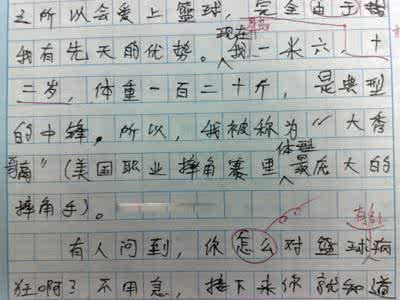 之所以会爱上篮球，完全由于
我有先天的优势。现在我一米六，十
二岁，体重一百二十斤，是典型
的中锋。所以，我被称为“大秀
”（美国职业摔角赛里体型最庞大的
摔角手）。
有人问到，你怎么对篮球病
狂啊？不用急，接下来你就知道